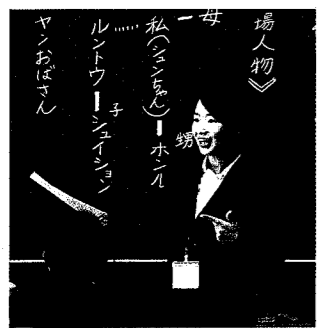 場人物》
母
私(シュンちゃん)ーホンル
甥
ルントウーシュイション
子
ヤンおばさん